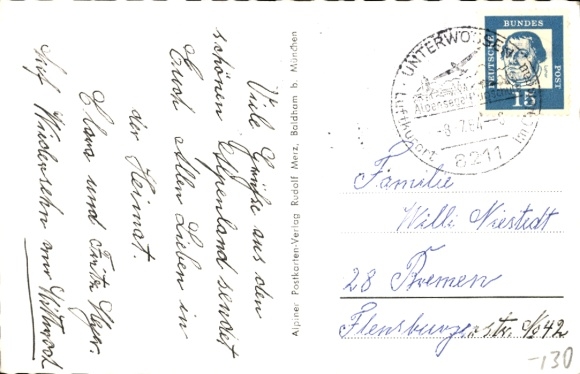 Viele Grüße aus den
schönen Alpenland sendet
Euch Allen Lieben in
der Heimat.
Clara und Fritz
Auf Wiedersehn am Mittwoch
Alpiner Postkarten-Verlag Rudolf Merz, Baldham b. München
UNTERWÖSSEN
Luftkurort
8211
DEUTSCHE BUNDES POST
15
Familie
Willi Niestedt
28 Bremen
Flensburger str. 42
-130